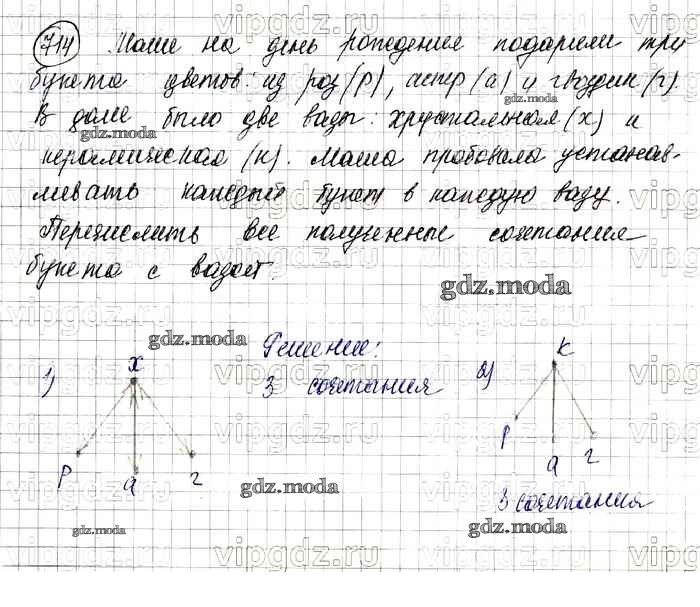 714 Маше на день рождение подарили три
букета цветов: из роз (р), астр (а) и гвоздик (г).
В доме было две вазы: хрустальная (х) и
керамическая (к). Маша пробовала устанав-
ливать каждый букет в каждую вазу.
Перечислить все полученные сочетания
букета с вазой.
Решение:
1) х
3 сочетания
р а г
2) к
р а г
3 сочетания
gdz.moda
gdz.moda
gdz.moda
gdz.moda
gdz.moda
gdz.moda
gdz.moda
vipgdz.ru